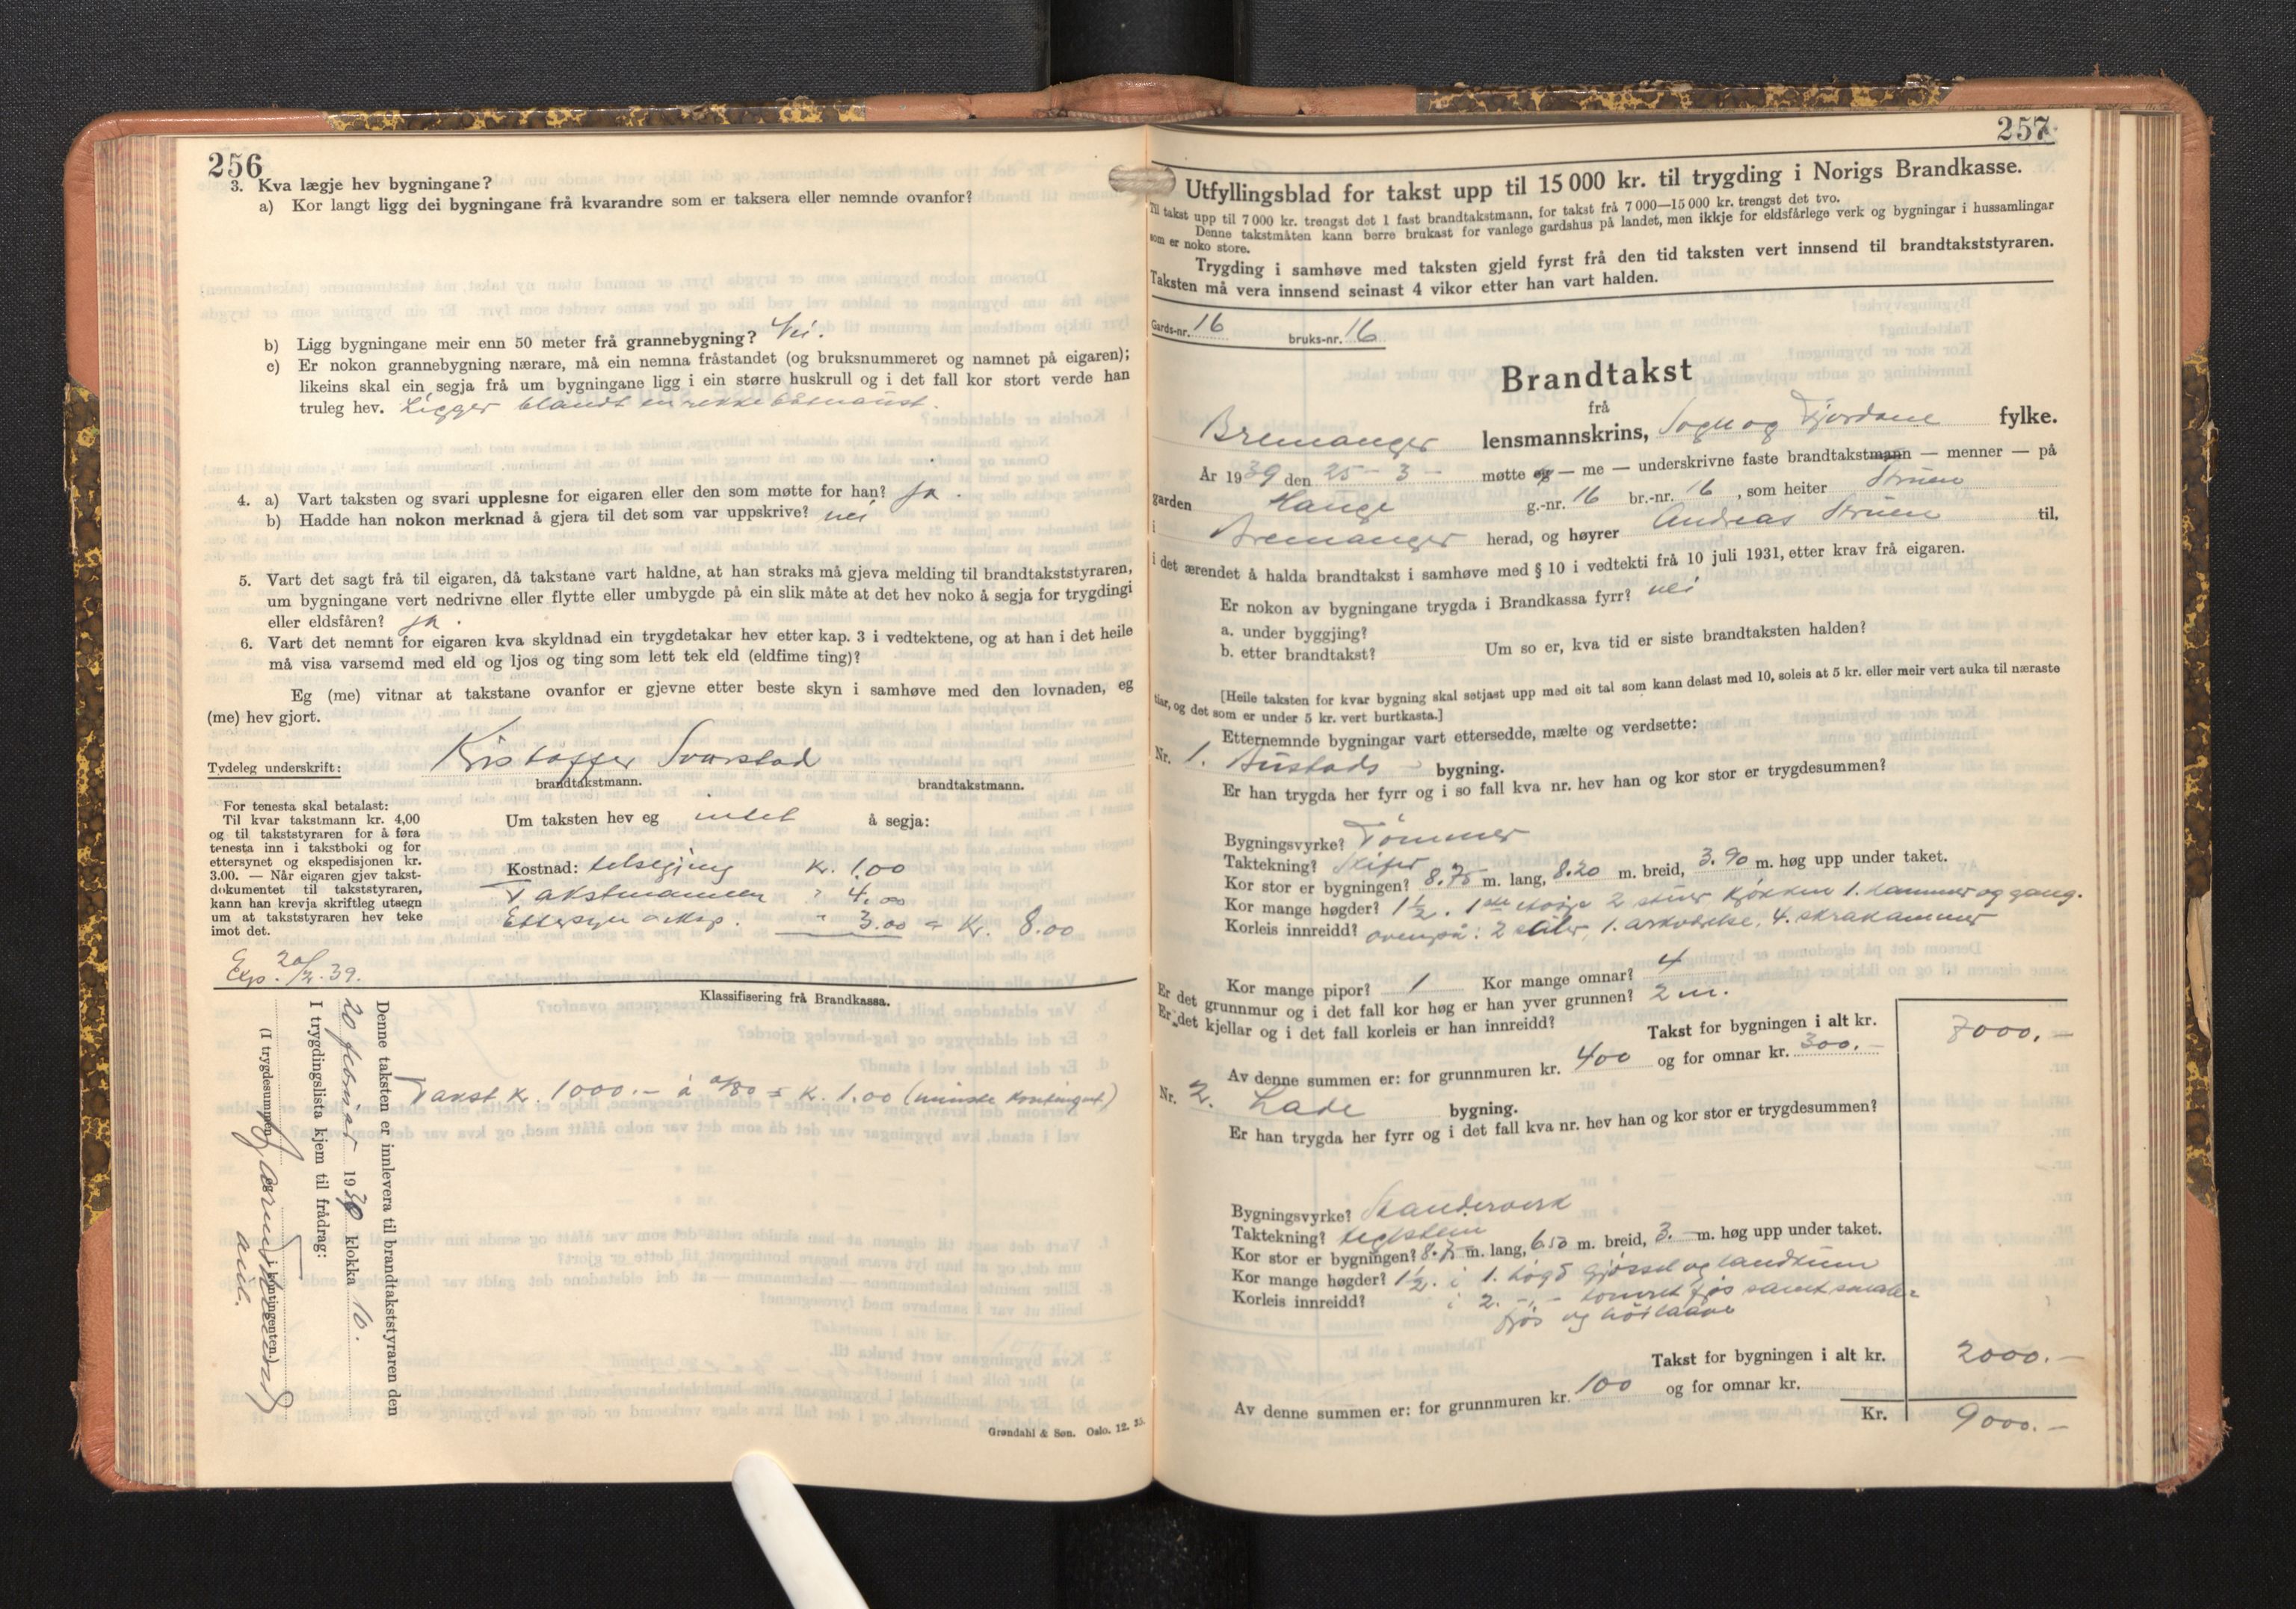 256
3. Kva lægje hev bygningane?
a) Kor langt ligg dei bygningane frå kvarandre som er taksera eller nemnde ovanfor?
b) Ligg bygningane meir enn 50 meter frå grannebygning? Nei.
c) Er nokon grannebygning nærare, må ein nemna fråstandet (og bruksnummeret og namnet på eigaren);
likeins skal ein segja frå um bygningane ligg i ein større huskrull og i det fall kor stort verde han
truleg hev. Ligger blandt en rekke båtnaust.
4. a) Vart taksten og svari upplesne for eigaren eller den som møtte for han? ja.
b) Hadde han nokon merknad å gjera til det som var uppskrive? nei
5. Vart det sagt frå til eigaren, då takstane vart haldne, at han straks må gjeva melding til brandtakststyraren,
um bygningane vert nedrivne eller flytte eller umbygde på ein slik måte at det hev noko å segja for trygdingi
eller eldsfåren? ja.
6. Vart det nemnt for eigaren kva skyldnad ein trygdetakar hev etter kap. 3 i vedtektene, og at han i det heile
må visa varsemd med eld og ljos og ting som lett tek eld (eldfime ting)?
Eg (me) vitnar at takstane ovanfor er gjevne etter beste skyn i samhøve med den lovnaden, eg
(me) hev gjort.
Tydeleg underskrift: Kristoffer Svarstad
brandtakstmann. brandtakstmann.
For tenesta skal betalast:
Til kvar takstmann kr. 4,00
og til takststyraren for å føra
tenesta inn i takstboki og for
ettersynet og ekspedisjonen kr.
3.00. — Når eigaren gjev takst-
dokumentet til takststyraren,
kann han krevja skriftleg utsegn
um at takststyraren hev teke
imot det.
Um taksten hev eg intet å segja:
Kostnad: tilsiging Kr. 1.00
Takstmannen " 4.00
Ettersyn o eksp. " 3.00 = Kr. 8.00
Exp. 20/2.39.
Klassifisering frå Brandkassa.
Takst kr. 1000.- à 0/80 = Kr. 1.00 (minste kontingent)
Denne taksten er innlevera til brandtakststyraren den
20 februar 1939 klokka 10.
I trygdingslista kjem til frådrag:
(I trygdesummen og i kontingenten.)
Grøndahl & Søn. Oslo. 12. 33.
257
Utfyllingsblad for takst upp til 15 000 kr. til trygding i Norigs Brandkasse.
Til takst upp til 7 000 kr. trengst det 1 fast brandtakstmann, for takst frå 7 000—15 000 kr. trengst det tvo.
Denne takstmåten kann berre brukast for vanlege gardshus på landet, men ikkje for eldsfårlege verk og bygningar i hussamlingar
som er noko store.
Trygding i samhøve med taksten gjeld fyrst frå den tid taksten vert innsend til brandtakststyraren.
Taksten må vera innsend seinast 4 vikor etter han vart halden.
Gards-nr. 16 bruks-nr. 16
Brandtakst
frå
Bremanger lensmannskrins, Sogn og Fjordane fylke.
År 1939 den 25 - 3 - møtte eg — me — underskrivne faste brandtakstmann — menner — på
garden Hauge g.-nr. 16 br.-nr. 16, som heiter Struen
i Bremanger herad, og høyrer Andreas Struen til,
i det ærendet å halda brandtakst i samhøve med § 10 i vedtekti frå 10 juli 1931, etter krav frå eigaren.
Er nokon av bygningane trygda i Brandkassa fyrr? nei
a. under byggjing?
b. etter brandtakst? Um so er, kva tid er siste brandtaksten halden?
[Heile taksten for kvar bygning skal setjast upp med eit tal som kann delast med 10, soleis at 5 kr. eller meir vert auka til næraste
tiar, og det som er under 5 kr. vert burtkasta.]
Etternemnde bygningar vart ettersedde, mælte og verdsette:
Nr. 1. Bustads - bygning.
Er han trygda her fyrr og i so fall kva nr. hev han og kor stor er trygdesummen?
Bygningsvyrke? Tømmer
Taktekning? Skifer
Kor stor er bygningen? 8.75 m. lang, 8.20 m. breid, 3.90 m. høg upp under taket.
Kor mange høgder? 1½. 1ste etasje 2 stuer kjøkken 1. kammer og gang.
Korleis innreidd? ovenpå: 2 saler, 1. arkvdelse, 4. skrakammer
Kor mange pipor? 1 Kor mange omnar? 4
Er det grunnmur og i det fall kor høg er han yver grunnen? 2 m.
Er det kjellar og i det fall korleis er han innreidd?
Takst for bygningen i alt kr. 7000.-
Av denne summen er: for grunnmuren kr. 400 og for omnar kr. 300.-
Nr. 2. Lade bygning.
Er han trygda her fyrr og i det fall kva nr. hev han og kor stor er trygdesummen?
Bygningsvyrke? Standerverk
Taktekning? teglstein
Kor stor er bygningen? 8.75 m. lang, 6.50 m. breid, 3.- m. høg upp under taket.
Kor mange høgder? 1½. i 1. høgd gjødsel og landrum
Korleis innreidd? i 2. -"- tømret fjøs samt smale-
fjøs og høilaave
Takst for bygningen i alt kr. 2000.-
Av denne summen er: for grunnmuren kr. 100 og for omnar kr.
Kr. 9000.-